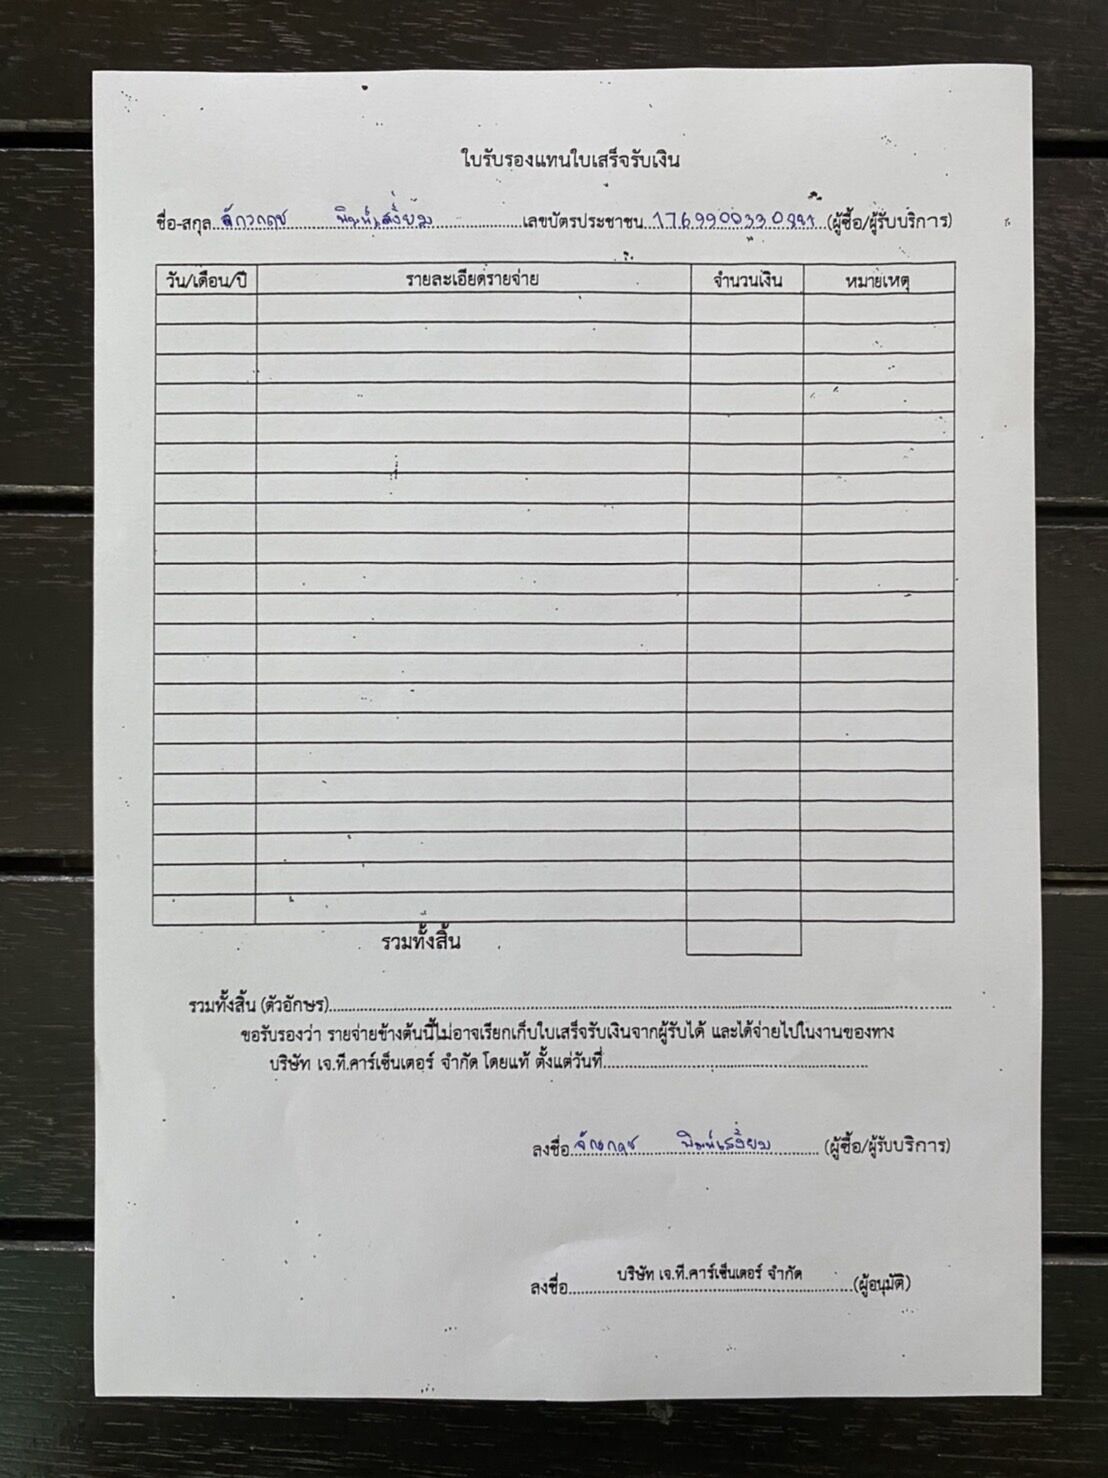 ใบรับรองแทนใบเสร็จรับเงิน
ชื่อ-สกุล จักวกฤช พิมพ์เสงี่ยม เลขบัตรประชาชน (ผู้ซื้อ/ผู้รับบริการ)
วัน/เดือน/ปี รายละเอียดรายจ่าย จำนวนเงิน หมายเหตุ
รวมทั้งสิ้น
รวมทั้งสิ้น (ตัวอักษร)
ขอรับรองว่า รายจ่ายข้างต้นนี้ไม่อาจเรียกเก็บใบเสร็จรับเงินจากผู้รับได้ และได้จ่ายไปในงานของทาง
บริษัท เจ.ที.คาร์เซ็นเตอร์ จำกัด โดยแท้ ตั้งแต่วันที่
ลงชื่อ พิมพ์เสงี่ยม (ผู้ซื้อ/ผู้รับบริการ)
บริษัท เจ.ที.คาร์เซ็นเตอร์ จำกัด
ลงชื่อ (ผู้อนุมัติ)